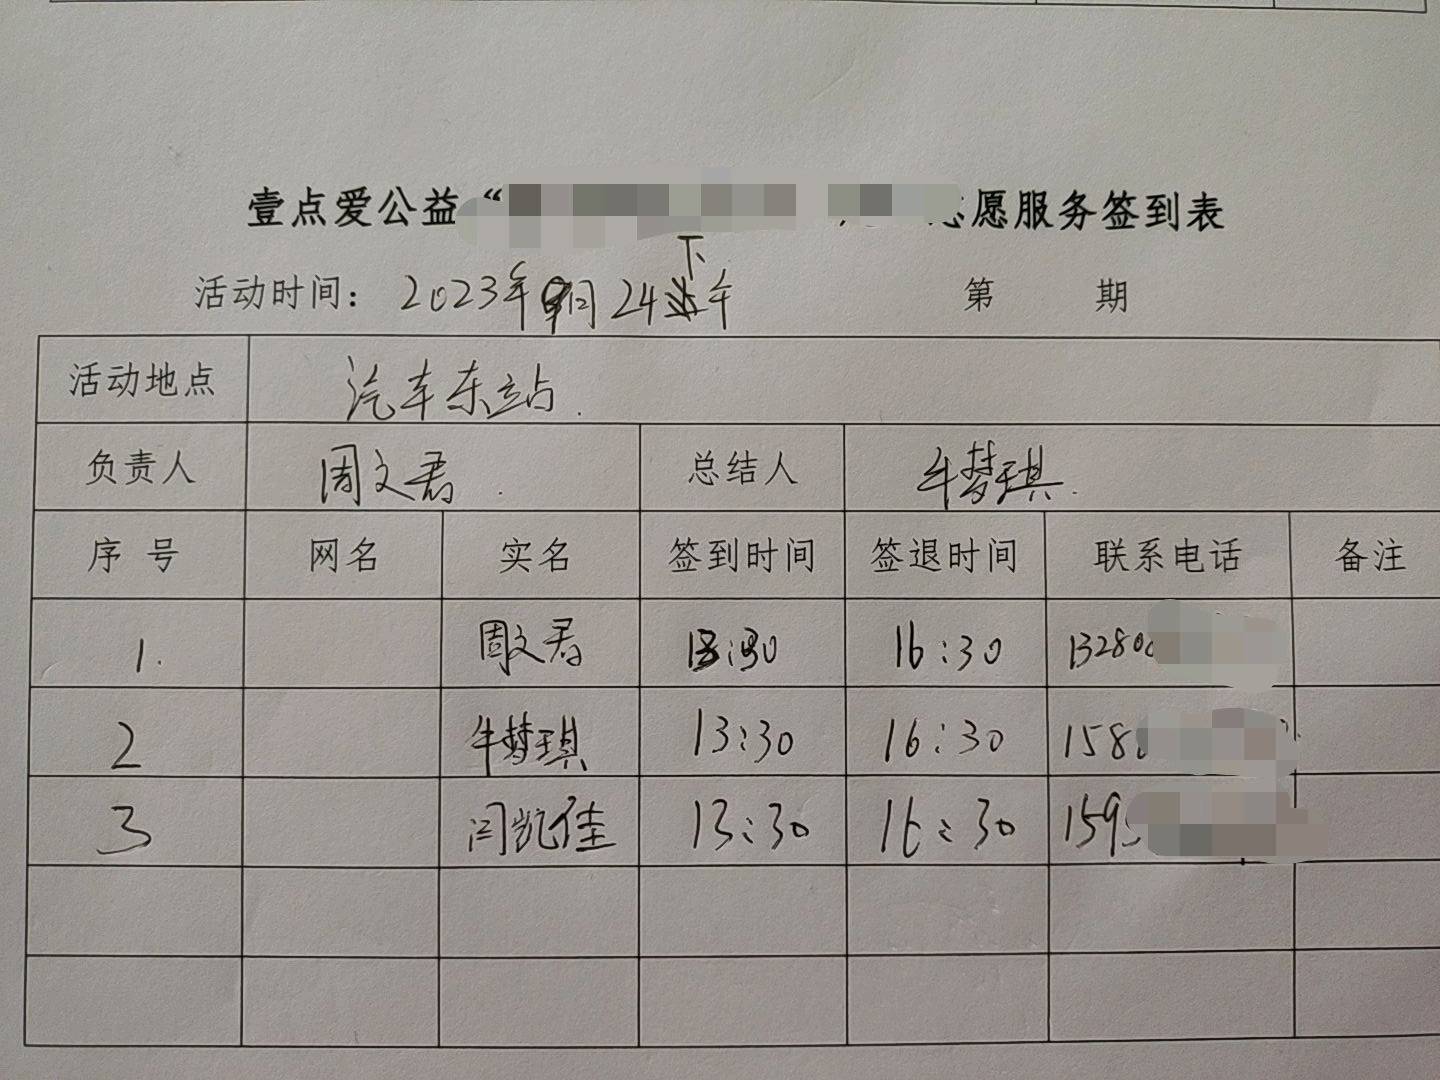 壹点爱公益“ 愿服务签到表
活动时间：2023年9月24下午 第 期
活动地点 汽车东站.
负责人 周文君. 总结人 牛梦琪.
序号 网名 实名 签到时间 签退时间 联系电话 备注
1. 周文君 13:30 16:30 13280
2 牛梦琪 13:30 16:30 158
3 闫凯佳 13:30 16:30 159